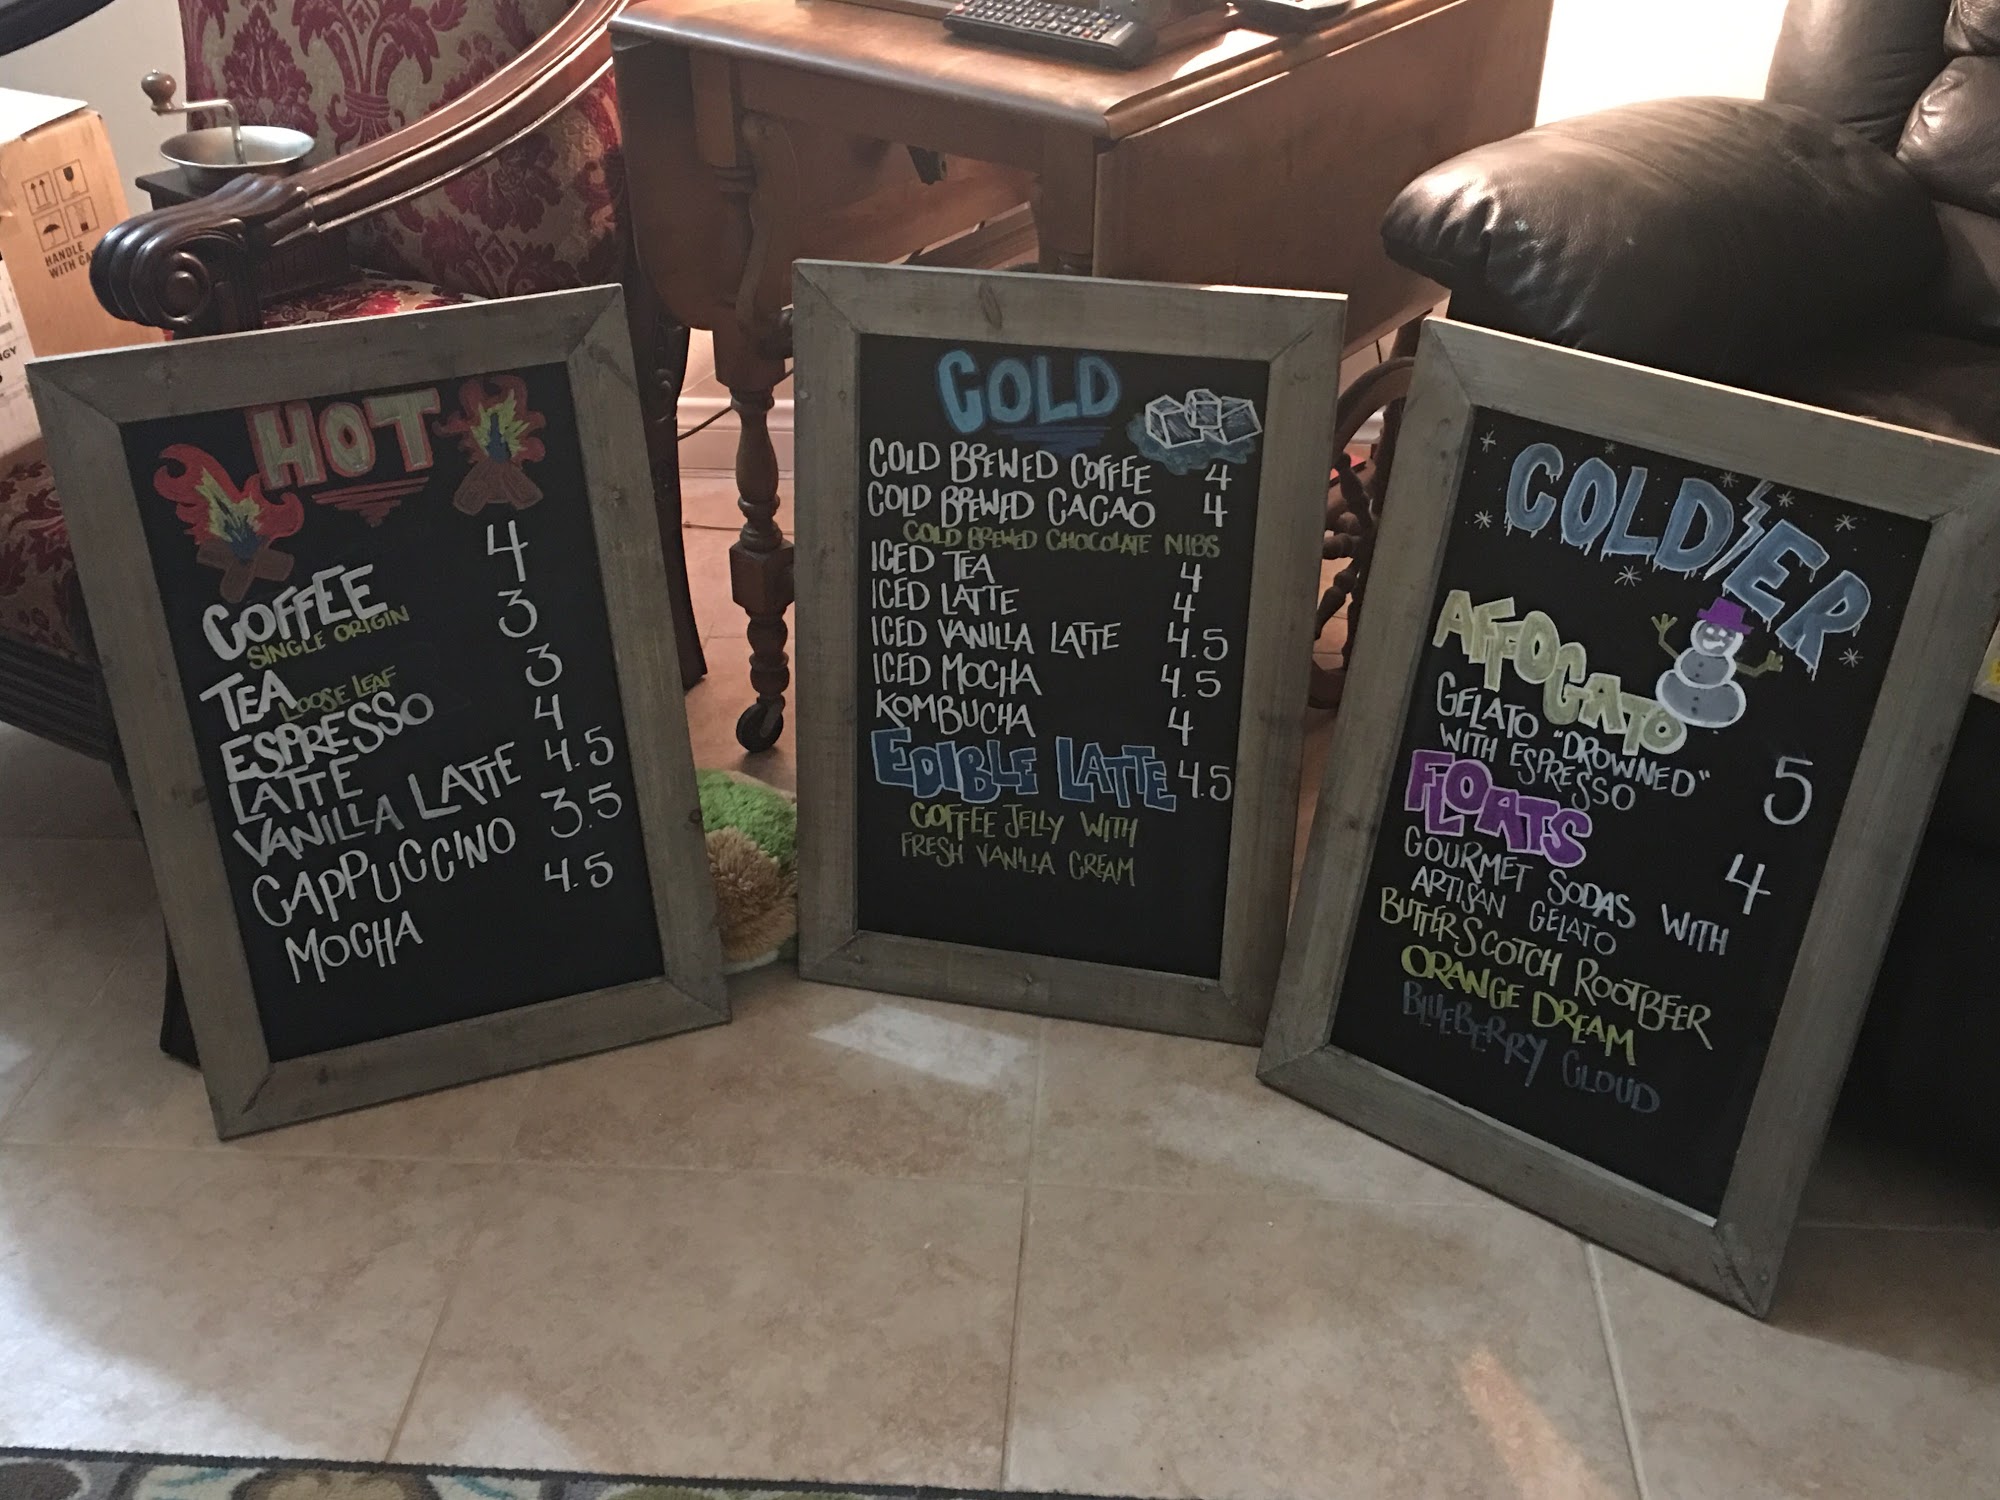 HANDLE
WITH CA
HOT
COFFEE 4
SINGLE ORIGIN
TEA 3
LOOSE LEAF
ESPRESSO 3
LATTE 4
VANILLA LATTE 4.5
CAPPUCCINO 3.5
MOCHA 4.5
COLD
COLD BREWED COFFEE 4
COLD BREWED CACAO 4
COLD BREWED CHOCOLATE NIBS
ICED TEA 4
ICED LATTE 4
ICED VANILLA LATTE 4.5
ICED MOCHA 4.5
KOMBUCHA 4
EDIBLE LATTE 4.5
COFFEE JELLY WITH
FRESH VANILLA CREAM
COLD ER
AFFOGATO
GELATO "DROWNED"
WITH ESPRESSO 5
FLOATS 4
GOURMET SODAS WITH
ARTISAN GELATO
BUTTERSCOTCH ROOTBEER
ORANGE DREAM
BLUEBERRY CLOUD